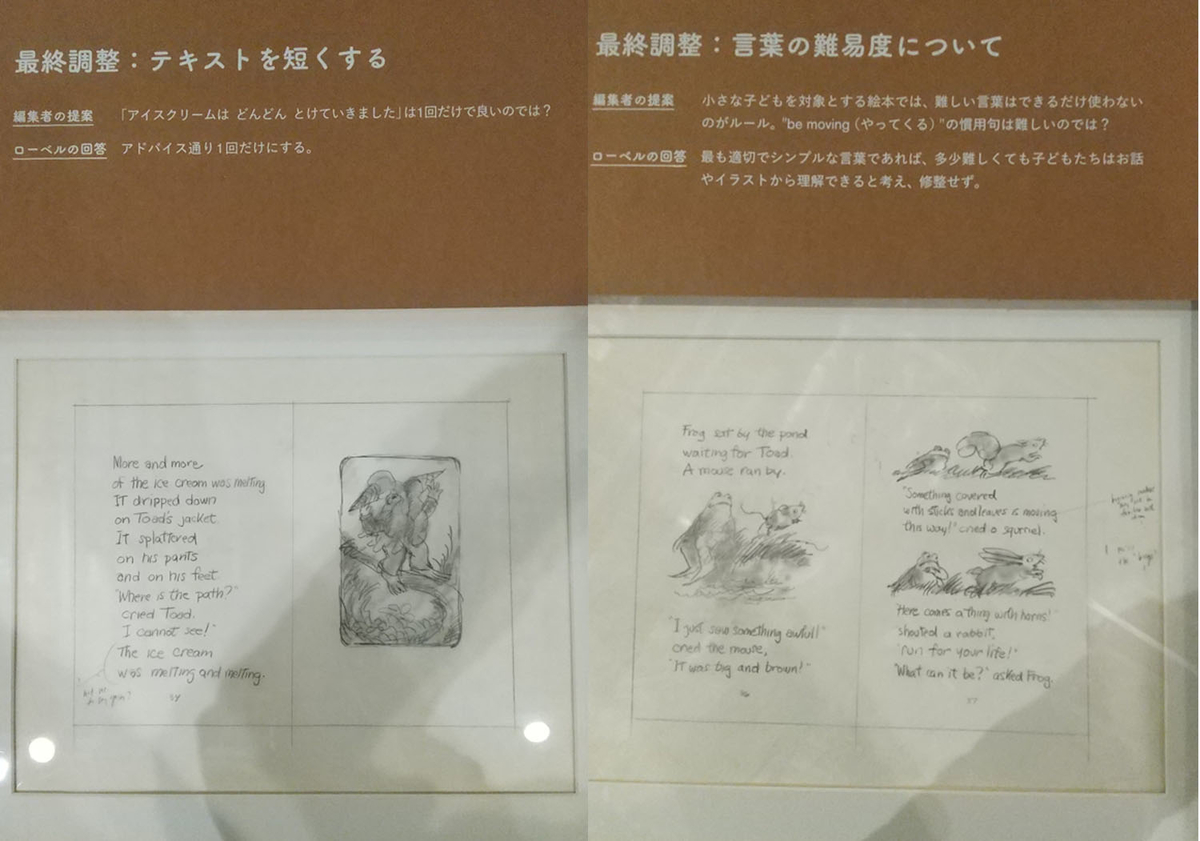 最終調整：テキストを短くする
編集者の提案　「アイスクリームは どんどん とけていきました」は1回だけで良いのでは？
ローベルの回答　アドバイス通り1回だけにする。
More and more
of the ice cream was melting
IT dripped down
on Toad's jacket.
It splattered
on his pants
and on his feet.
"Where is the path?"
cried Toad.
"I cannot see!"
The ice cream
was melting and melting.
最終調整：言葉の難易度について
編集者の提案　小さな子どもを対象とする絵本では、難しい言葉はできるだけ使わない
のがルール。"be moving（やってくる）"の慣用句は難しいのでは？
ローベルの回答　最も適切でシンプルな言葉であれば、多少難しくても子どもたちはお話
やイラストから理解できると考え、修整せず。
Frog sat by the pond
waiting for Toad.
A mouse ran by.
"I just saw something awful!"
cried the mouse,
"IT was big and brown!"
36
"Something covered
with sticks and leaves is moving
this way!" cried a squirrel.
"Here comes a thing with horns!"
shouted a rabbit.
"run for your life!"
"What can it be?" asked Frog.
37